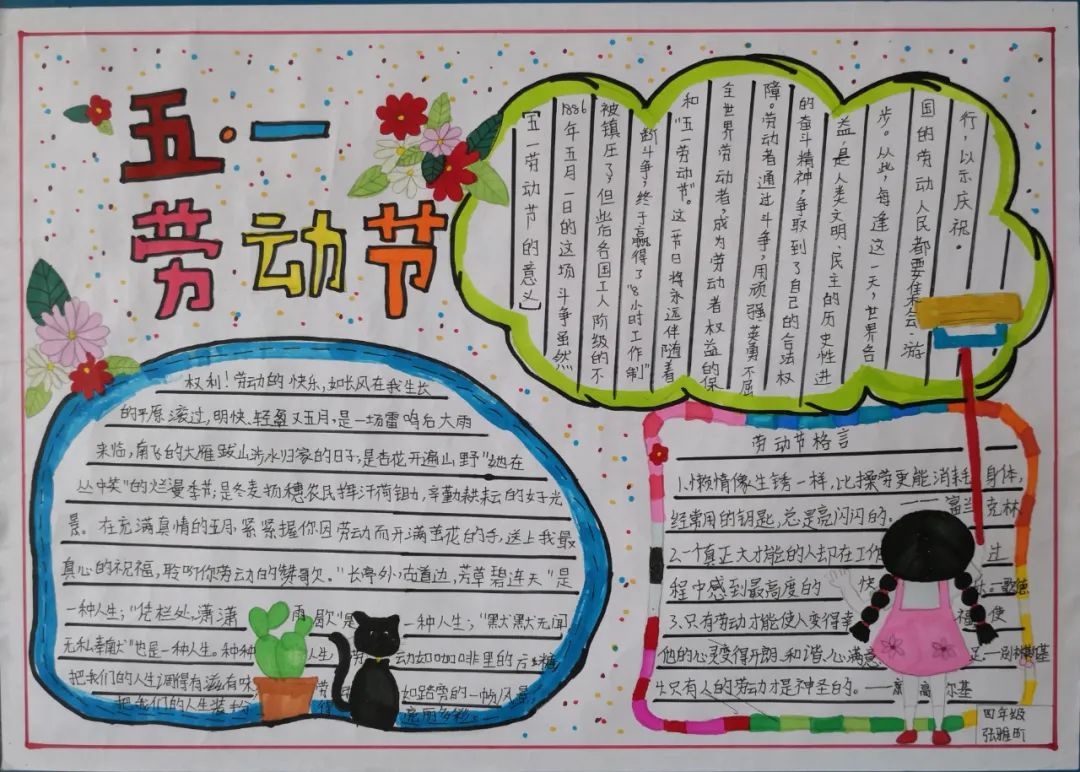 五·一
劳动节
[五一劳动节的意义]
1886年五月一日的这场斗争虽然
被镇压了,但此后各国工人阶级的不
断斗争,终于赢得了"8小时工作制"
和"五一劳动节"。这一节日将永远伴随着
全世界劳动者,成为劳动者权益的保
障。劳动者通过斗争,用顽强、英勇不屈
的奋斗精神,争取到了自己的合法权
益,是人类文明、民主的历史性进
步。从此,每逢这一天,世界各
国的劳动人民都要集会、游
行,以示庆祝。
权利!劳动的快乐,如长风在我生长
的平原滚过,明快、轻盈又五月,是一场雷鸣后大雨
来临,南飞的大雁跋山涉水归家的日子;是杏花开遍山,野"她在
丛中笑"的烂漫季节;是冬麦扬穗农民挥汗荷锄,辛勤耕耘的好光
景。在充满真情的五月,紧紧握你因劳动而开满茧花的手,送上我最
真心的祝福,聆听你劳动的赞歌。"长亭外,古道边,芳草碧连天"是
一种人生;"凭栏处,潇潇雨歇"是一种人生;"默默无闻
无私奉献"也是一种人生。种种人生动如咖啡里的方糖
把我们的人生调得有滋有味劳如踏实的一帧风景,
把我们的人生装得亮丽多彩。
劳动节格言
1.懒惰像生锈一样,比操劳更能消耗身体,
经常用的钥匙,总是亮闪闪的。——富兰克林
2.一个真正大才能的人却在工作过
程中感到最高度的快乐。—歌德
3.只有劳动才能使人变得幸福,使
他的心灵变得开朗、和谐、心满意足。—别林斯基
4.只有人的劳动才是神圣的。——高尔基
四年级
张雅